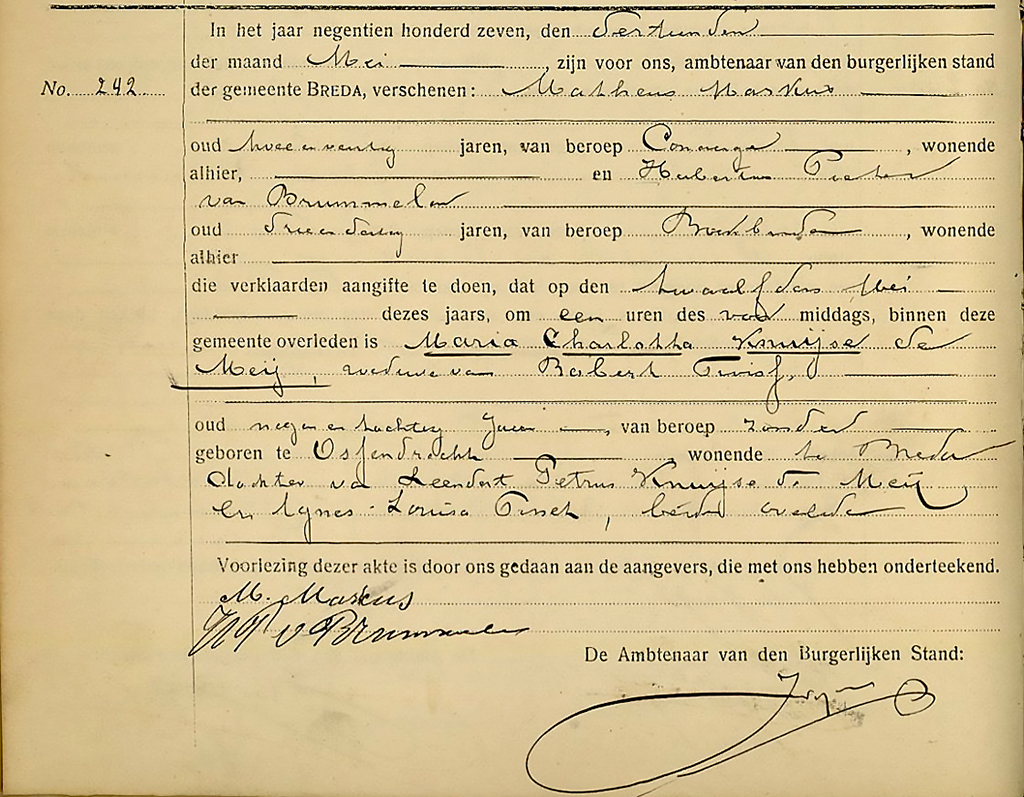 In het jaar negentien honderd zeven, den dertienden
der maand Mei, zijn voor ons, ambtenaar van den burgerlijken stand
No. 242
der gemeente BREDA, verschenen: Matheus Markus
oud twee en veertig jaren, van beroep Concierge, wonende
alhier, en Hubertus Pieter
van Brummelen
oud drie en dertig jaren, van beroep Boekbinder, wonende
alhier
die verklaarden aangifte te doen, dat op den twaalfden Mei
dezes jaars, om een uren des voor middags, binnen deze
gemeente overleden is Maria Charlotta Knuijse de
Meij, weduwe van Robert
oud negen en tachtig jaren, van beroep zonder
geboren te Ossendrecht, wonende te Breda
dochter van Leendert Petrus Knuijse de Meij
en Agnes Louisa, beiden overleden
Voorlezing dezer akte is door ons gedaan aan de aangevers, die met ons hebben onderteekend.
M. Markus
HP v Brummelen
De Ambtenaar van den Burgerlijken Stand: